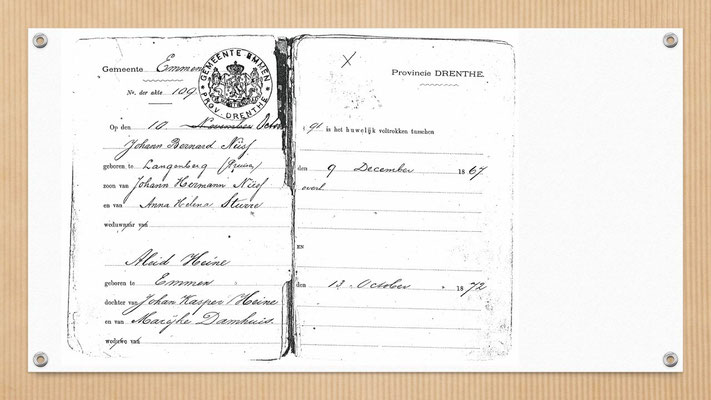 Gemeente Emmen
GEMEENTE EMMEN
PROV. DRENTHE
No. der akte 109
Op den 10 November Octo
Johann Bernard
geboren te Langenberg
zoon van Johann Hermann
en van Anna Helena
weduwnaar van
Aleid Heine
geboren te Emmen
dochter van Johan Kasper Heine
en van Marijke Damhuis
weduwe van
X
Provincie DRENTHE.
91 is het huwelijk voltrokken tusschen
den 9 December 1867
overl.
EN
den 13 October 1872